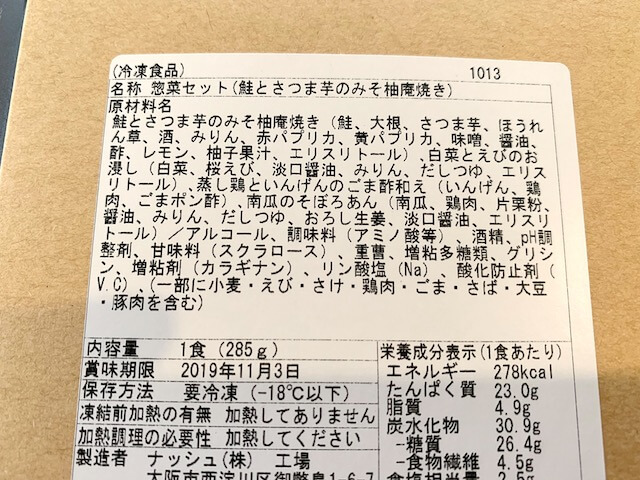 (冷凍食品) 1013
名称 惣菜セット(鮭とさつま芋のみそ柚庵焼き)
原材料名
鮭とさつま芋のみそ柚庵焼き（鮭、大根、さつま芋、ほうれ
ん草、酒、みりん、赤パプリカ、黄パプリカ、味噌、醤油、
酢、レモン、柚子果汁、エリスリトール）､白菜とえびのお
浸し（白菜、桜えび、淡口醤油、みりん、だしつゆ、エリス
リトール）､蒸し鶏といんげんのごま酢和え（いんげん、鶏
肉、ごまポン酢）､南瓜のそぼろあん（南瓜、鶏肉、片栗粉、
醤油、みりん、だしつゆ、おろし生姜、淡口醤油、エリスリ
トール）／アルコール、調味料（アミノ酸等）､酒精、pH調
整剤、甘味料（スクラロース）､重曹、増粘多糖類、グリシ
ン、増粘剤（カラギナン）､リン酸塩（Na）､酸化防止剤（
V.C）､(一部に小麦・えび・さけ・鶏肉・ごま・さば・大豆
・豚肉を含む)
内容量 1食（285ｇ）
賞味期限 2019年11月3日
保存方法 要冷凍（-18℃以下）
凍結前加熱の有無 加熱してありません
加熱調理の必要性 加熱してください
製造者 ナッシュ(株) 工場
大阪市西淀川区御幣島1-6-7
栄養成分表示(1食あたり)
エネルギー 278kcal
たんぱく質 23.0g
脂質 4.9g
炭水化物 30.9g
-糖質 26.4g
-食物繊維 4.5g
食塩相当量 2.5g